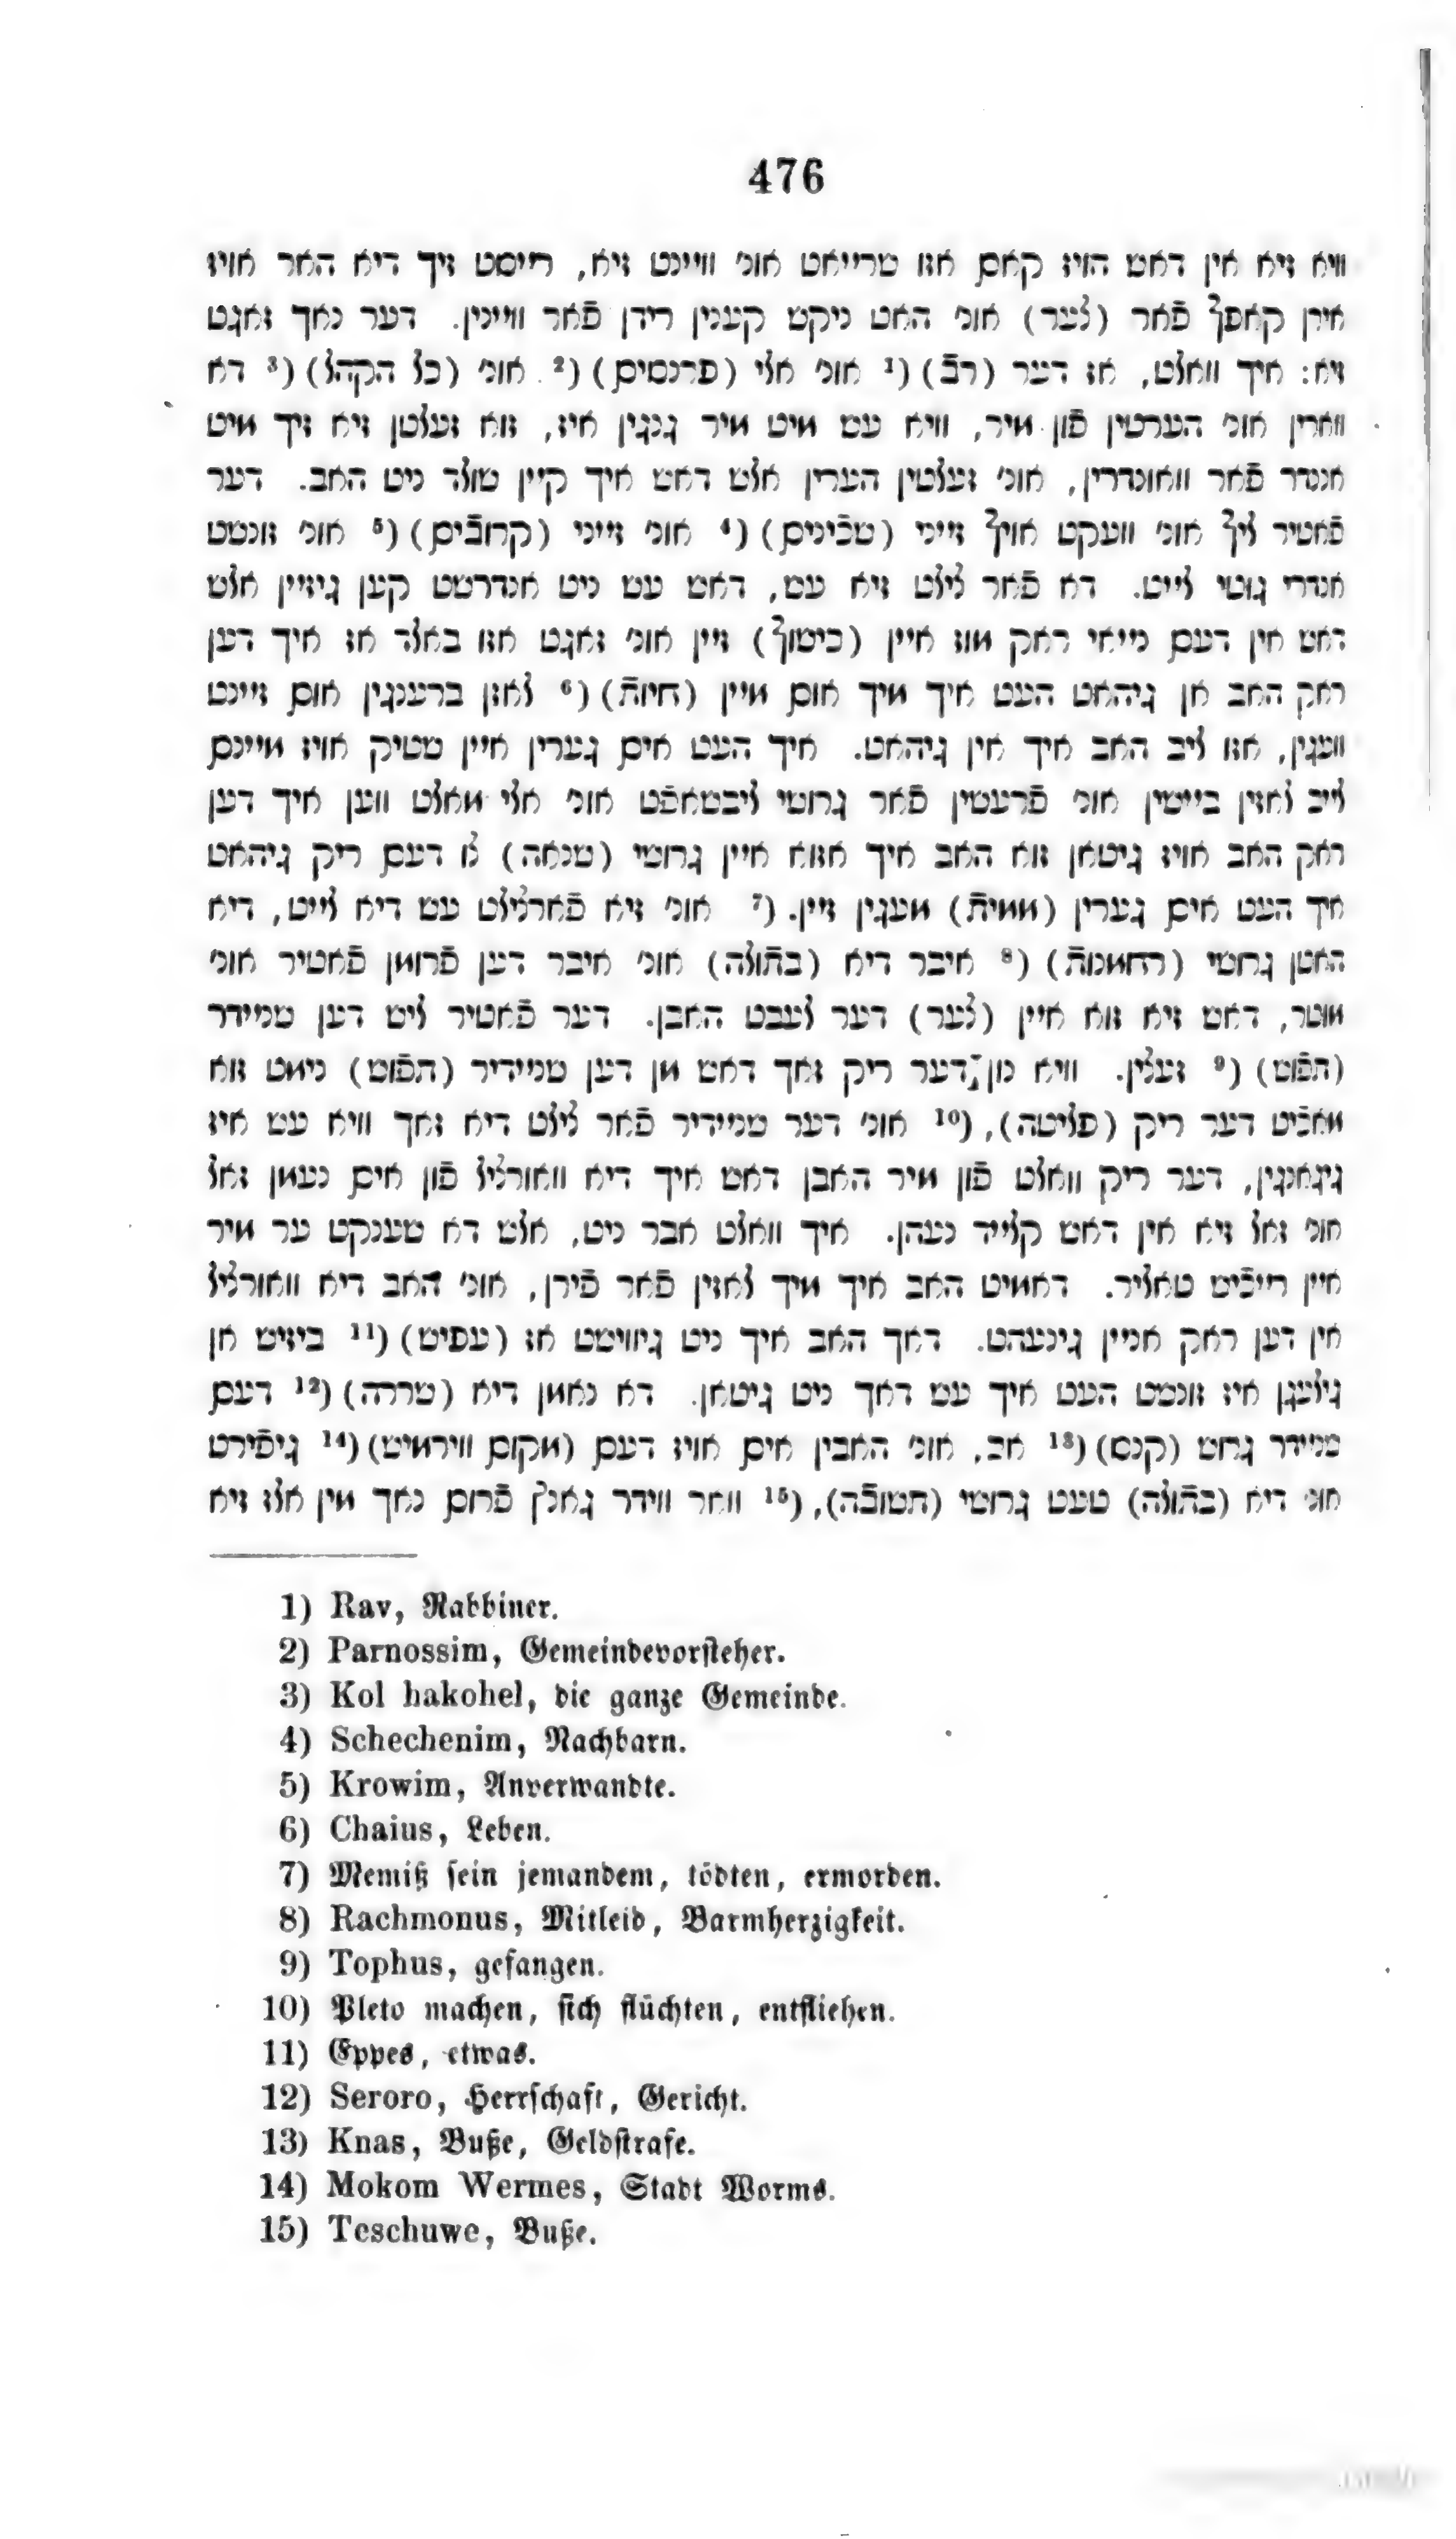 476
וויא זיא אין דאש הויז קאם אזו שרייאט אונ׳ וויינט זיא, רייסט זיך דיא האר אויז
אירן קאפף פֿאר (לער) אונ׳ האט ניקש קענין רידן פֿאר וויינין. דער נאך זאגט
זיא: איך וואלט, אז דער (רבֿ) (1 אונ׳ אלי (פרנסים) (2 אונ׳ (כל הקהל) (3 דא
ווארין אונ׳ הערטין פֿון מיר, וויא עש מיט מיר גנגין איז, זוא זעלטן זיא זיך מיט
אננדר פֿאר וואונדרין, אונ׳ זעלטין הערין אלש דאש איך קיין שולד ניט האב. דער
פֿאטיר ליף אונ׳ וועקט אויף זייני (שכֿינים) (4 אונ׳ זייני (קרובֿים) (5 אונ׳ זונשט
אנדרי גוטי לייט. דא פֿאר לילט זיא עש, דאש עש ניט אנדרשט קען גיזיין אלש
דאש אין דעם נייאי ראק מוז איין (כישוף) זיין אונ׳ זאגט אזו באלד אז איך דען
ראק האב אן גיהאט העט איך מיך אום מיין (חיותֿ) (6 לאזן ברענגין אום זיינט
וועגין, אזו ליב האב איך אין גיהאט. איך העט אים גערין איין שטיק אויז מיינם
לייב לאזין ביישין אונ׳ פֿרעשין פֿאר גרושי ליבשאפֿט אונ׳ אלי מאלט ווען איך דען
ראק האב אויז גיטאן זוא האב איך אזוא איין גרושי (שנאה) צו דעם ריק גיהאט
איך העט אים גערין (ממיתֿ) מעגין זיין. (7 אונ׳ זיא פֿארלילט עש דיא לייט, דיא
האטן גרושי (רחמנותֿ) (8 איבר דיא (בתֿולה) אונ׳ איבר דען פֿרומן פֿאטיר אונ׳
מוטר, דאש זיא זוא איין (לער) דער לעבט האבן. דער פֿאטיר ליש דען שמידר
(תפֿוש) (9 זעלין. וויא נון דער ריק זאך דאש מן דען שמידיר (תפֿוש) נימט זוא
מאכֿיט דער ריק (פליטה), (10 אונ׳ דער שמידיר פֿאר לילט דיא זאך וויא עש איז
גיגאנגין, דער ריק וואלט פֿון מיר האבן דאש איך דיא וואורליל פֿון אים נעמן זאל
אונ׳ זאל זיא אין דאש קלייד נעהן. איך וואלט אבר ניט, אלש דא שענקט ער מיר
איין רייכֿיש טאליר. דאמיט האב איך מיך לאזין פֿאר פֿירן, אונ׳ האב דיא וואורליל
אין דען ראק אניין גינעהט. דאך האב איך ניט גיוויסט אז (עפיש) (11 ביזיש אן
גילעגן איז זונשט העט איך עש דאך ניט גיטאן. דא נאמן דיא (שררה) (12 דעם
שמידר גרוש (קנס) (13 אב, אונ׳ האבין אים אויז דעם (מקום ווירמיש) (14 גיפֿירט
אונ׳ דיא (בתֿולה) טעט גרושי (תשובֿה), (15 וואר ווידר גאנץ פֿרום נאך מין אלז זיא
1) Rav, Rabbiner.
2) Parnossim, Gemeindevorsteher.
3) Kol hakohel, die ganze Gemeinde.
4) Schechenim, Nachbarn.
5) Krowim, Anverwandte.
6) Chaius, Leben.
7) Memiß sein jemandem, tödten, ermorden.
8) Rachmonus, Mitleid, Barmherzigkeit.
9) Tophus, gefangen.
10) Pleto machen, sich flüchten, entfliehen.
11) Eppes, etwas.
12) Seroro, Herrschaft, Gericht.
13) Knas, Buße, Geldstrafe.
14) Mokom Wermes, Stadt Worms.
15) Teschuwe, Buße.